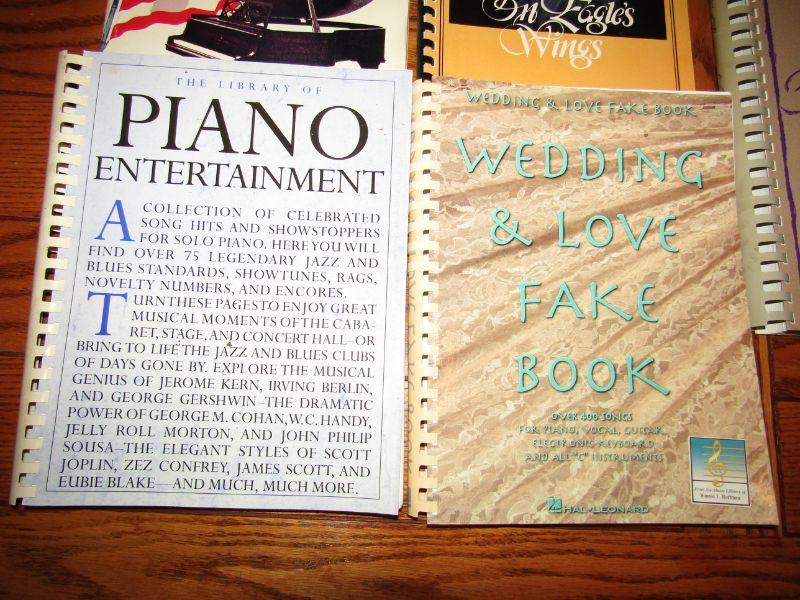 On Eagle's
Wings
THE LIBRARY OF
PIANO
ENTERTAINMENT
A COLLECTION OF CELEBRATED
SONG HITS AND SHOWSTOPPERS
FOR SOLO PIANO. HERE YOU WILL
FIND OVER 75 LEGENDARY JAZZ AND
BLUES STANDARDS, SHOWTUNES, RAGS,
NOVELTY NUMBERS, AND ENCORES.
TURN THESE PAGES TO ENJOY GREAT
MUSICAL MOMENTS OF THE CABA-
RET, STAGE, AND CONCERT HALL—OR
BRING TO LIFE THE JAZZ AND BLUES CLUBS
OF DAYS GONE BY. EXPLORE THE MUSICAL
GENIUS OF JEROME KERN, IRVING BERLIN,
AND GEORGE GERSHWIN—THE DRAMATIC
POWER OF GEORGE M. COHAN, W.C. HANDY,
JELLY ROLL MORTON, AND JOHN PHILIP
SOUSA—THE ELEGANT STYLES OF SCOTT
JOPLIN, ZEZ CONFREY, JAMES SCOTT, AND
EUBIE BLAKE—AND MUCH, MUCH MORE.
WEDDING & LOVE FAKE BOOK
WEDDING
& LOVE
FAKE
BOOK
OVER 400 SONGS
FOR PIANO, VOCAL, GUITAR,
ELECTRONIC KEYBOARD
AND ALL "C" INSTRUMENTS
From the Music Library of
HAL•LEONARD